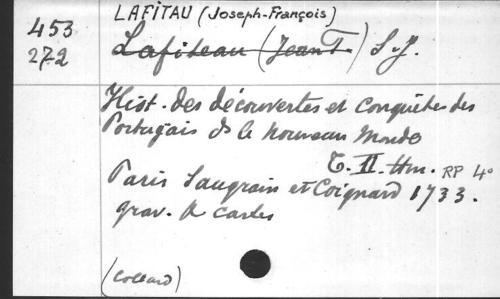 LAFITAU (Joseph-François)
453
272
Lafiteau (Jean F.) S.J.
Hist. des découvertes et conquêtes des
Portugais ds le nouveau monde
T. II. RP 4º
Paris Saugrain et Coignard 1733.
grav. & cartes
(Collard)